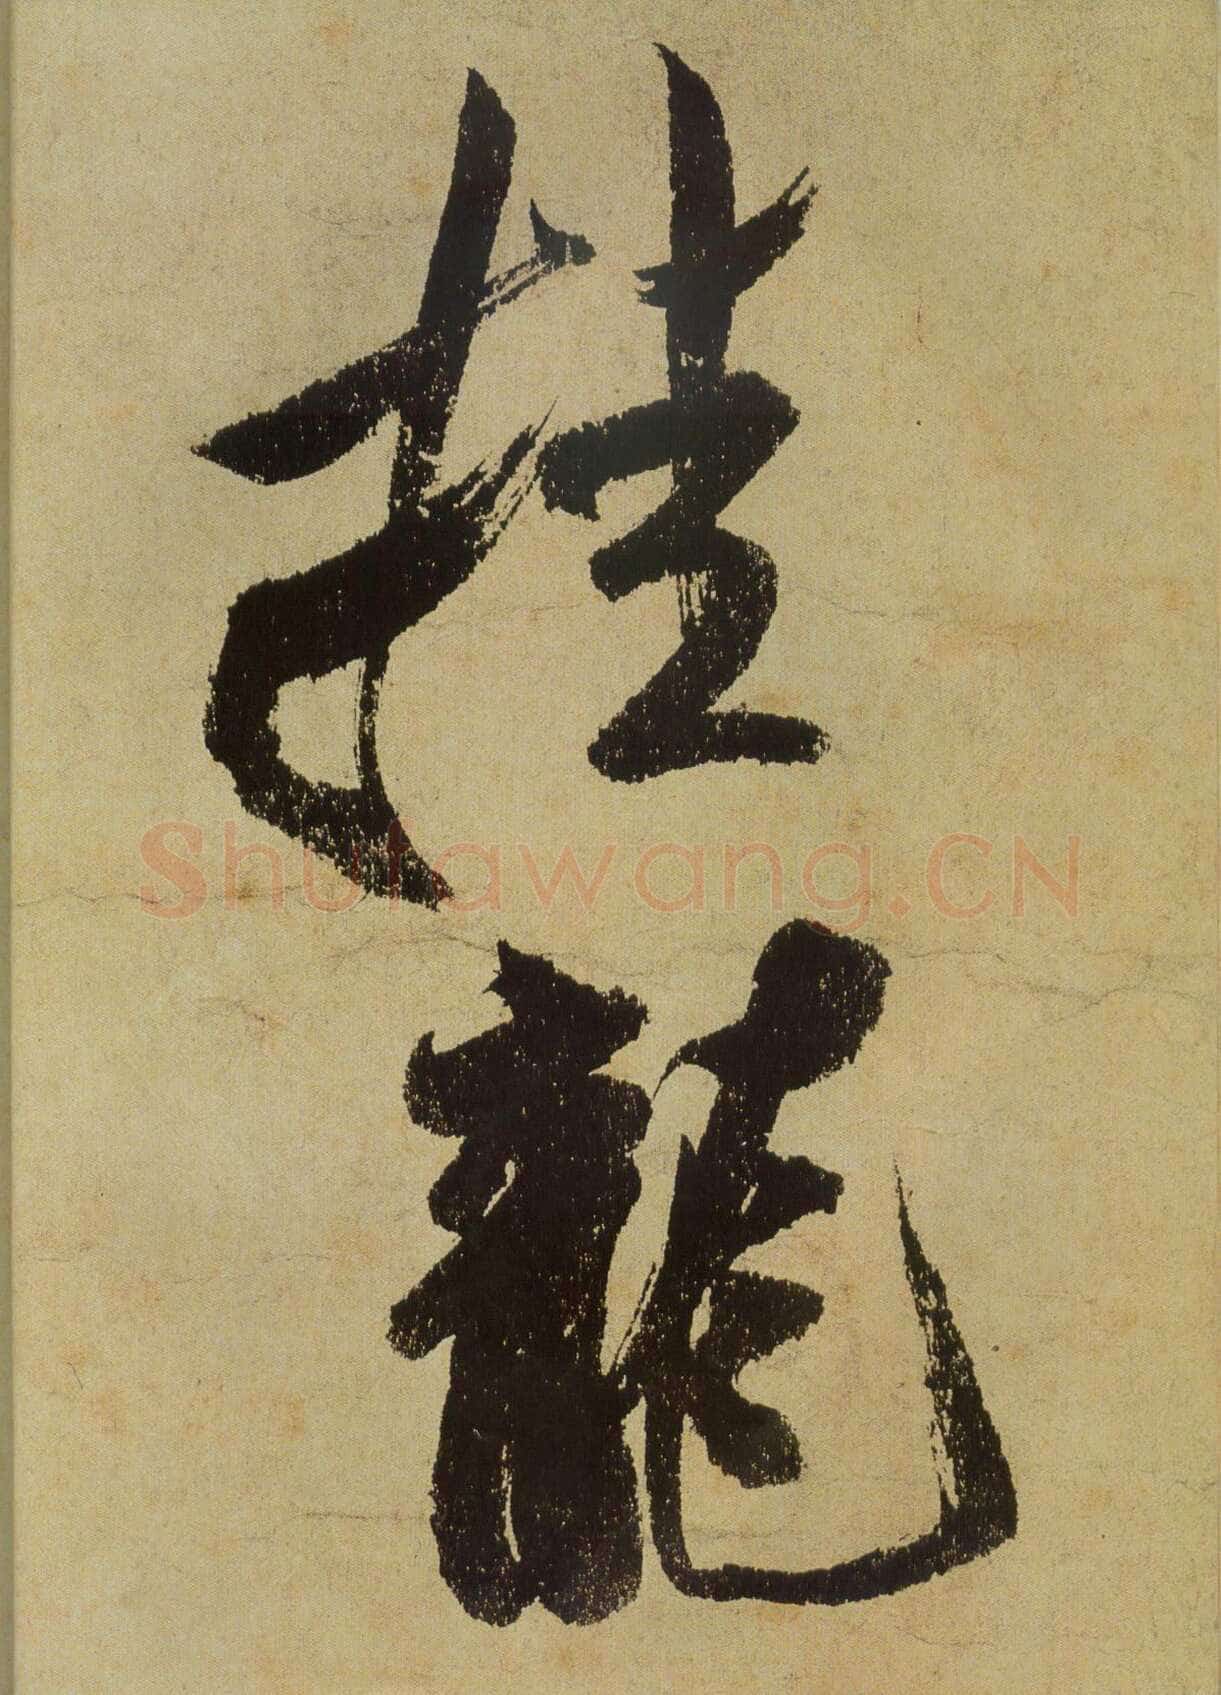 挂龍
Shufawang.CN